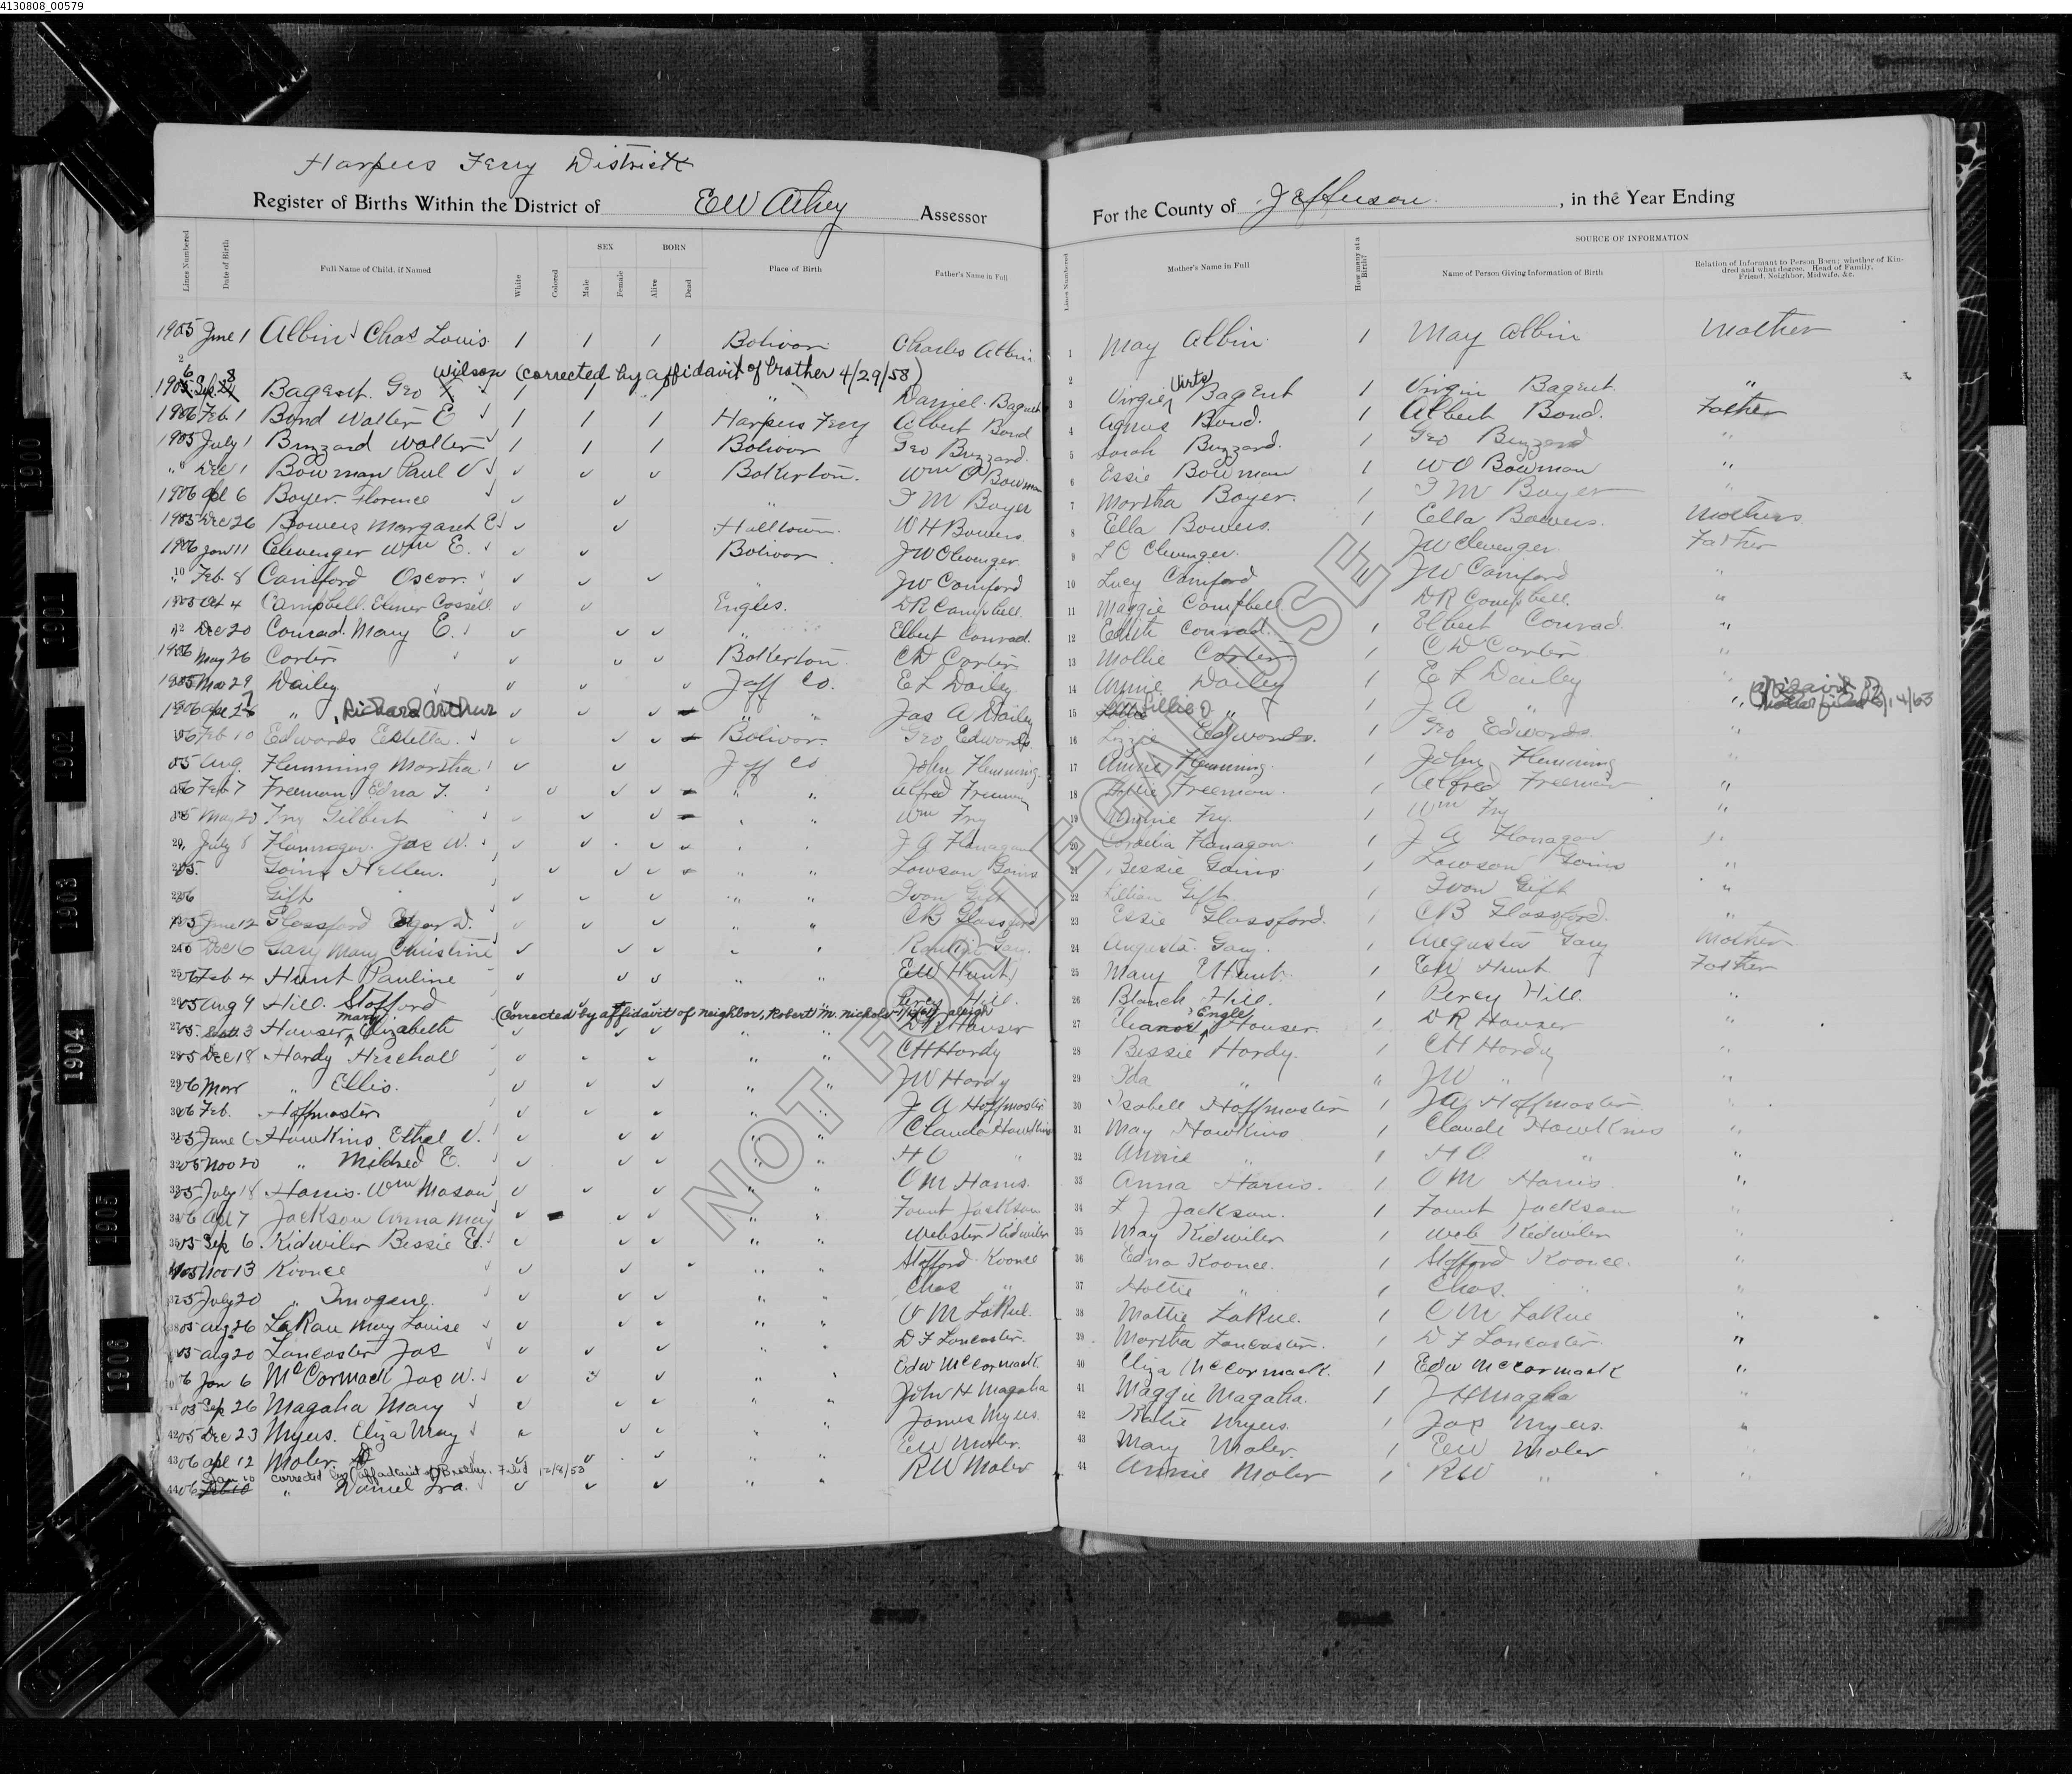 4130808_00579
Harpers Ferry District
Register of Births Within the District of EW Athey Assessor
For the County of Jefferson, in the Year Ending
Lines Numbered Date of Birth Full Name of Child, if Named White Colored SEX Male Female BORN Alive Dead Place of Birth Father's Name in Full
Lines Numbered Mother's Name in Full How many at a Birth? SOURCE OF INFORMATION Name of Person Giving Information of Birth Relation of Informant to Person Born; whether of Kindred and what degree. Head of Family, Friend, Neighbor, Midwife, &c.
1905 June 1 Albin Chas Louis 1 1 1 Bolivar Charles Albin 1 May Albin 1 May Albin Mother
Wilson (corrected by affidavit of brother 4/29/58)
Bagent Geo X 1 1 1 " Daniel Bagent Virgie Virts Bagent 1 Virgin Bagent "
1906 Feb 1 Bond Walter E 1 1 1 Harpers Ferry Albert Bond Agnus Bond. 1 Albert Bond. Father
1905 July 1 Buzzard Walter 1 1 1 Bolivar Geo Buzzard Sarah Buzzard. 1 Geo Buzzard "
" Dec 1 Bowman Paul V Bakerton. Wm O Bowman Essie Bowman 1 WO Bowman "
1906 Apl 6 Boyer Florence " T M Boyer Martha Boyer. 1 T M Boyer "
1905 Dec 26 Bowers Margaret E Halltown W H Bowers Ella Bowers. 1 Ella Bowers. Mothers
1906 Jan 11 Clevenger Wm E. Bolivar JW Clevenger L C Clevenger. JW Clevenger Father
" Feb 8 Cainford Oscar. " JW Comford 10 Lucy Comford JW Comford "
1905 Oct 4 Campbell Elmer Cossell Engles. DR Campbell. 11 Maggie Campbell DR Campbell. "
" Dec 20 Conrad Mary E. " Elbert Conrad. 12 Edith Conrad. 1 Elbert Conrad. "
1906 May 26 Carter Bakerton CW Carter 13 Mollie Carter 1 CW Carter "
1905 Mar 29 Dailey Jeff Co. E L Dailey 14 Annie Dailey 1 E L Dailey
" Richard Arthur " " Jas A Dailey 15 Lillie O " 1 J A "
06 Feb 10 Edwards Estella. Bolivar. Geo Edwards. 16 Lizzie Edwards. 1 Geo Edwards "
05 Aug. Flemming Martha Jeff Co John Flemming. 17 Annie Flemming. 1 John Flemming "
06 Feb 7 Freeman Edna T. " " Alfred Freeman 18 Freeman. 1 Alfred Freeman "
05 May 20 Fry Gilbert " " Wm Fry 19 Fry. 1 Wm Fry "
20 " July 8 Flannagan Jas W. " " J A Flanagan 20 Cordelia Flanagan 1 J A Flanagan "
05. Goins Hellen. " " Lawson Goins 21 Bessie Goins 1 Lawson Goins "
22 06 Gift " " Ivon Gift 22 Lillian Gift 1 Ivon Gift "
05 June 12 Glassford Edgar D. " " CB Glassford 23 Essie Glassford. 1 CB Glassford. "
24 05 Dec 6 Gary Mary Christine " " 24 Augusta Gary 1 Augusta Gary Mother
25 06 Feb 4 Hunt Pauline " " EW Hunt 25 Mary E Hunt. 1 EW Hunt Father
26 05 Aug 9 Hill. Stafford Percy Hill. 26 Blanch Hill. 1 Percy Hill. "
(Corrected by affidavit of neighbor, Robert M. Nichols
27 05. Sept 3 Hauser, Mary Elizabeth " " DR Hauser 27 Eleanor Engle Hauser. 1 DR Hauser "
28 05 Dec 18 Hardy Heschall " " CH Hardy 28 Bessie Hardy. 1 CH Hardy "
29 06 Mar " Ellis. " " JW Hardy 29 Ida " " JW " "
30 06 Feb. Hoffmaster " " J A Hoffmaster 30 Isabell Hoffmaster 1 JA Hoffmaster "
31 05 June 6 Hawkins Ethel V. " " Claude Hawkins 31 May Hawkins 1 Claude Hawkins "
32 05 Nov 20 " Mildred E. " " H O " 32 Annie " 1 H O " "
33 05 July 18 Harris. Wm Mason " " O M Harris. 33 Anna Harris. 1 O M Harris "
34 06 Apl 7 Jackson Anna May " " Fount Jackson 34 F J Jackson. 1 Fount Jackson "
35 05 Sep 6 Kidwiler Bessie E. " " Webster Kidwiler 35 May Kidwiler 1 Web Kidwiler "
05 Nov 13 Koonce " " Stafford Koonce 36 Edna Koonce. 1 Stafford Koonce. "
37 05 July 20 " Imogene. " " Chas " 37 Hattie " 1 Chas. " "
38 05 Aug 26 LaRau Mary Louise " " O M LaRue. 38 Mattie LaRue. 1 O M LaRue "
05 Aug 20 Lancaster Jas " " D F Lancaster. 39 Martha Lancaster. 1 D F Lancaster "
06 Jan 6 McCormack Jas W. " " Edw McCormack. 40 Eliza McCormack. 1 Edw McCormack "
05 Sep 26 Magaha Mary " " John H Magaha 41 Maggie Magaha. 1 J H Magha "
42 05 Dec 23 Myers. Eliza May " " James Myers. 42 Katie Myers. 1 Jas Myers. "
43 06 Apl 12 Moler " " EW Moler. 43 Mary Moler. 1 EW Moler
Jan 10 corrected by affadavit of Brother. Filed 12/8/53
44 06 Feb 10 " Daniel Ira. " " RW Moler 44 Annie Moler 1 RW " "
1900
1901
1902
1903
1904
1905
1906
NOT FOR LEGAL USE